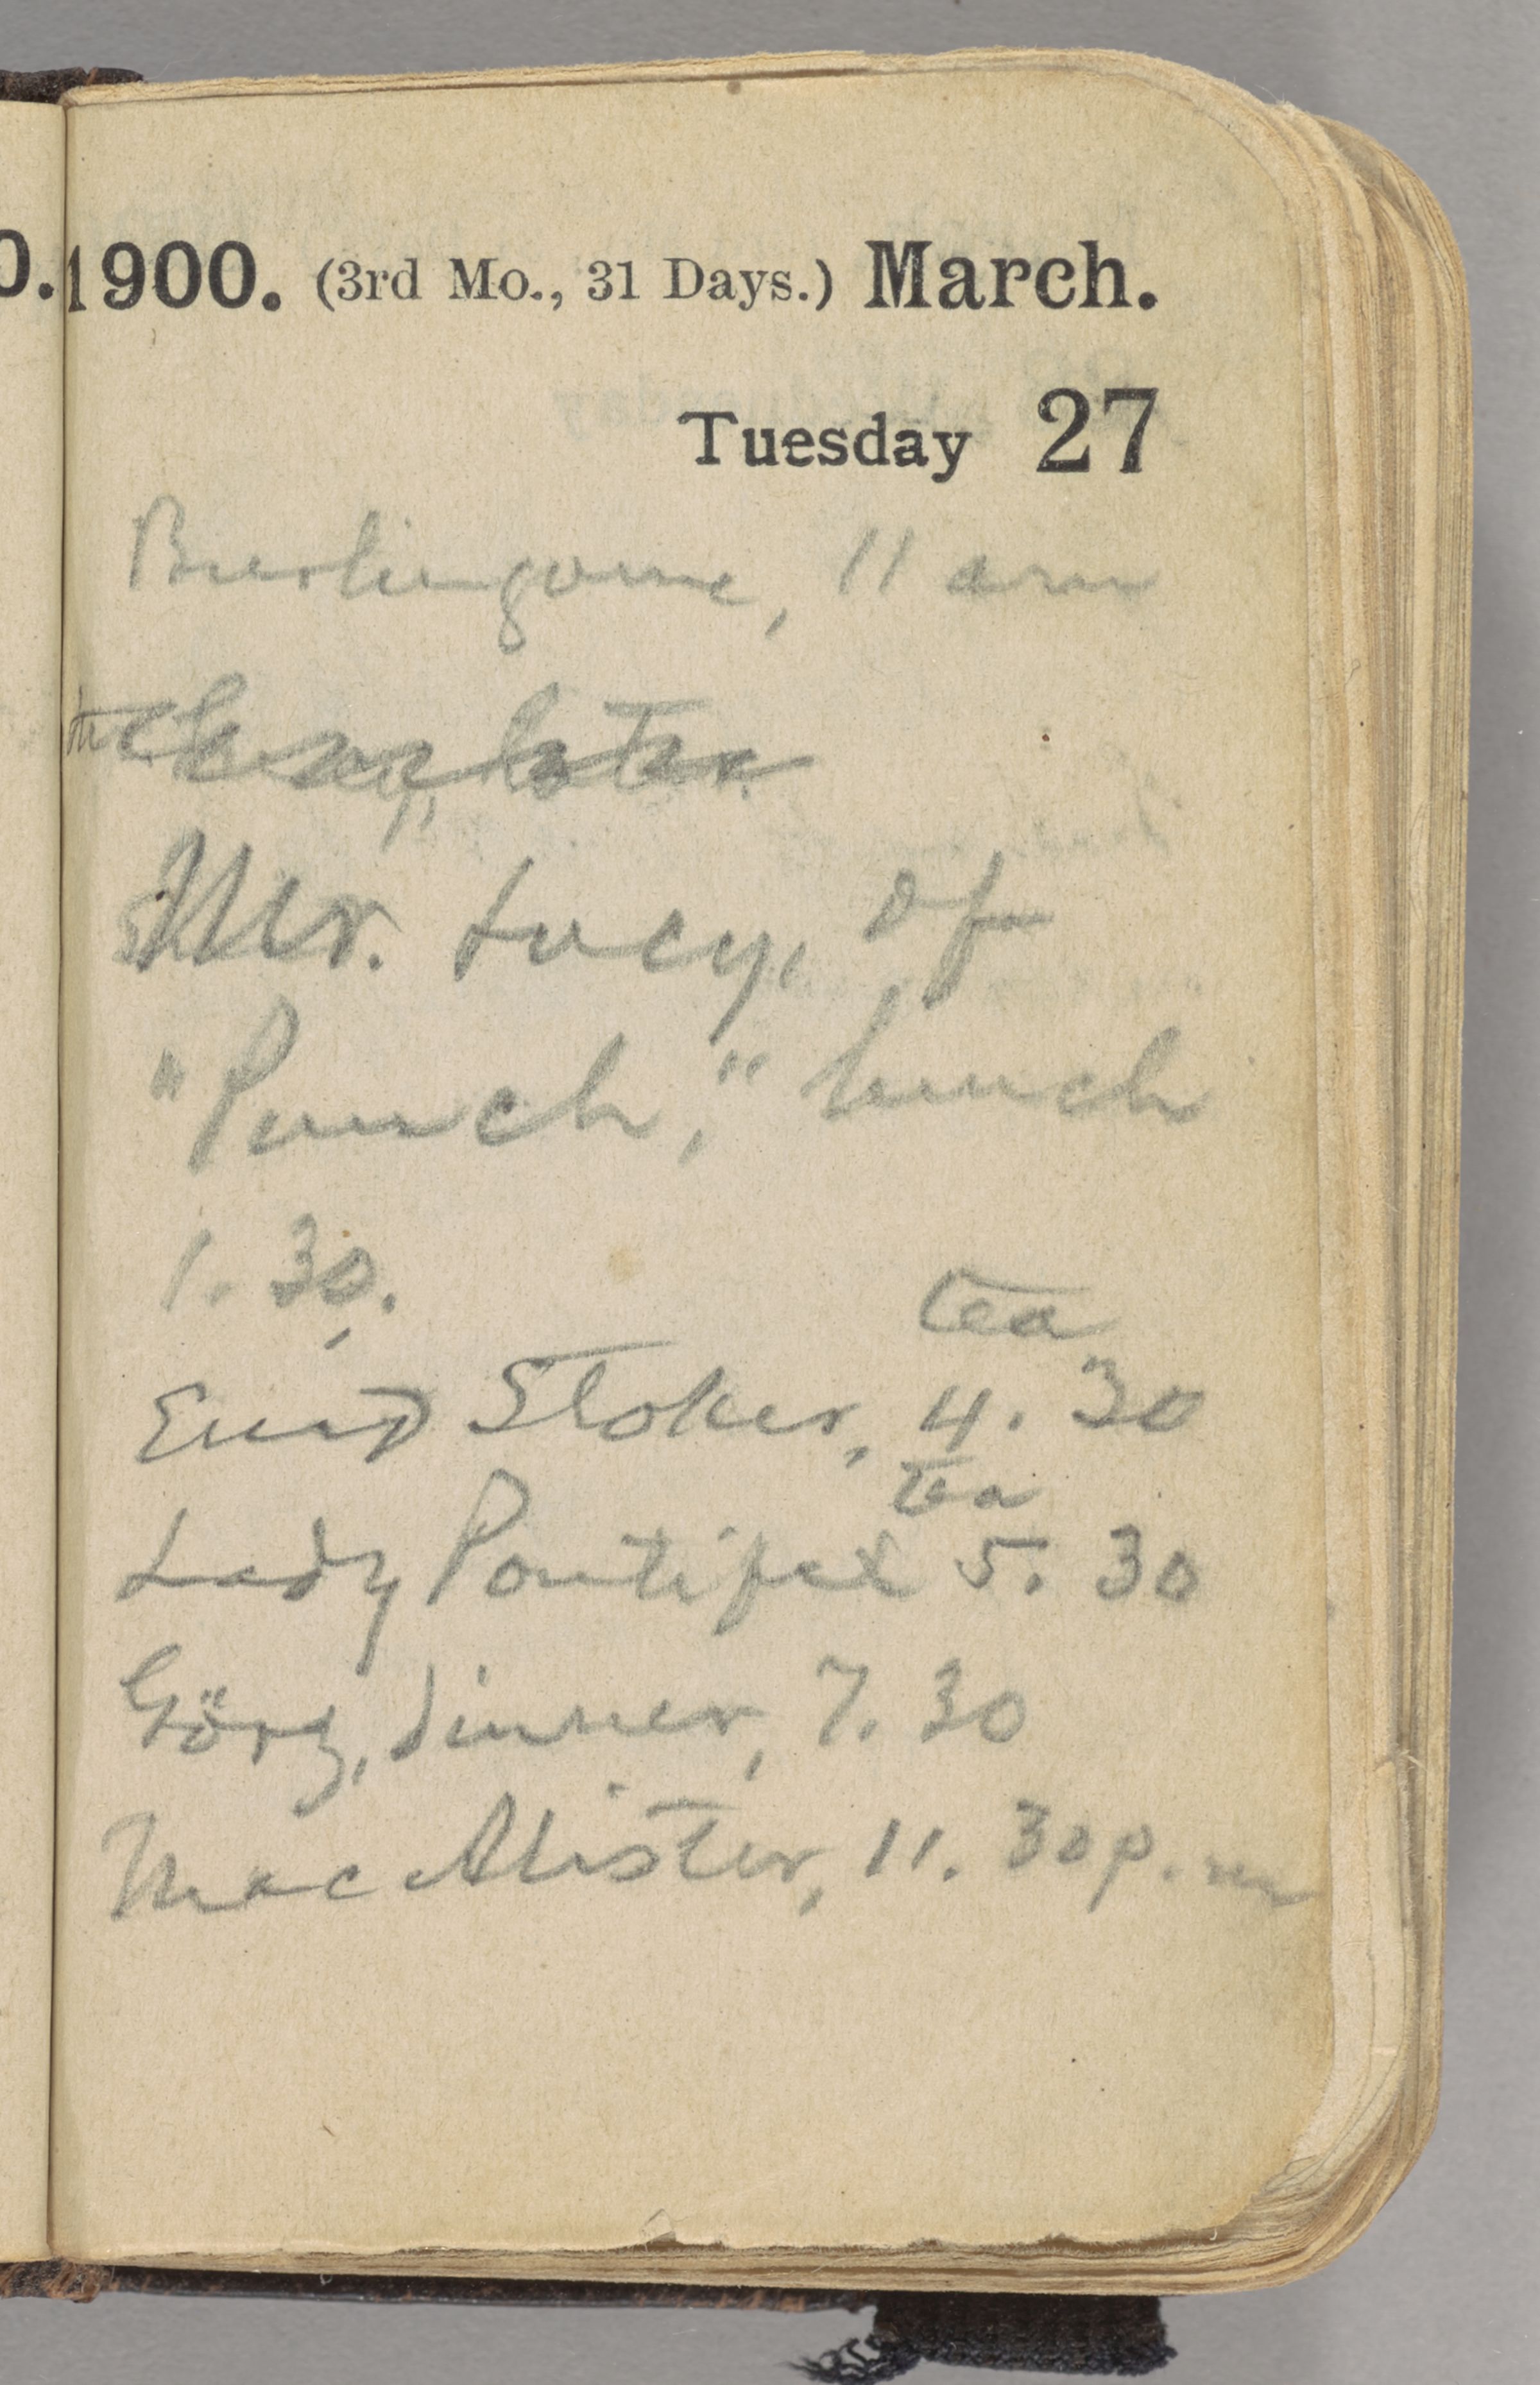 1900. (3rd Mo., 31 Days.) March.
Tuesday 27
Burlingame, 11 am
Mr. Lucy, of
"Punch," lunch
1.30.
tea
Enid Stoker, 4.30
tea
Lady Pontifex 5.30
Görz, dinner, 7.30
MacAlister, 11.30 p.m